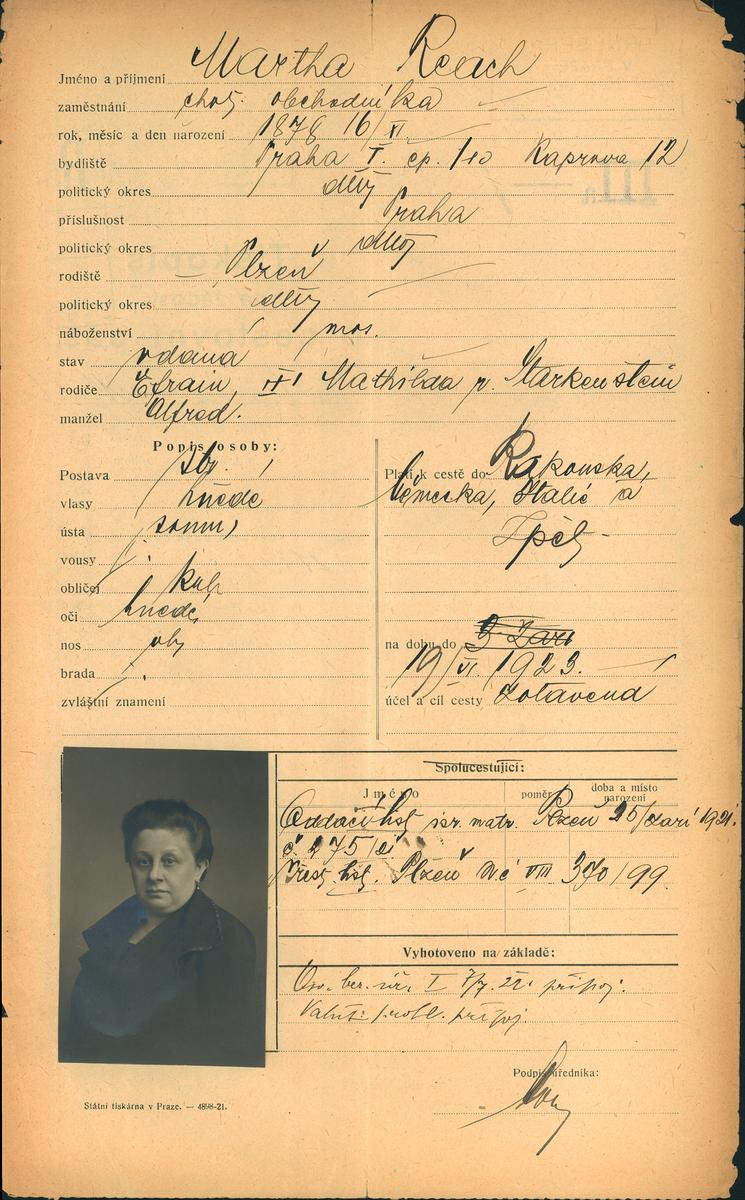 Jméno a příjmení Martha Reach
zaměstnání choť obchodníka
rok, měsíc a den narození 1878 16/XI
bydliště Praha I. čp. 110 Kaprova 12
politický okres dtto
příslušnost Praha
politický okres dtto
rodiště Plzeň
politický okres dtto
náboženství mos.
stav vdaná
rodiče Efraim, Mathilda r. Starkenstein
manžel Alfred.
Popis osoby:
Postava stř.
vlasy hnědé
ústa soum.
vousy
obličej kul.
oči hnědé
nos oby
brada
zvláštní znamení
Platí k cestě do Rakouska,
Německa, Italie a
Zpět
na dobu do 3. Září
19/VI. 1923.
účel a cíl cesty zotavená
Spolucestující:
Jméno poměr doba a místo narození
Oddací list isr. matr. Plzeň 25/září 1921.
č. 275/
Přísl. list. Plzeň Nc VIII 370/99.
Vyhotoveno na základě:
Osv. ber. úř. I 7/7. 22. připoj.
připoj.
Podpis úředníka:
Státní tiskárna v Praze. — 4898-21.